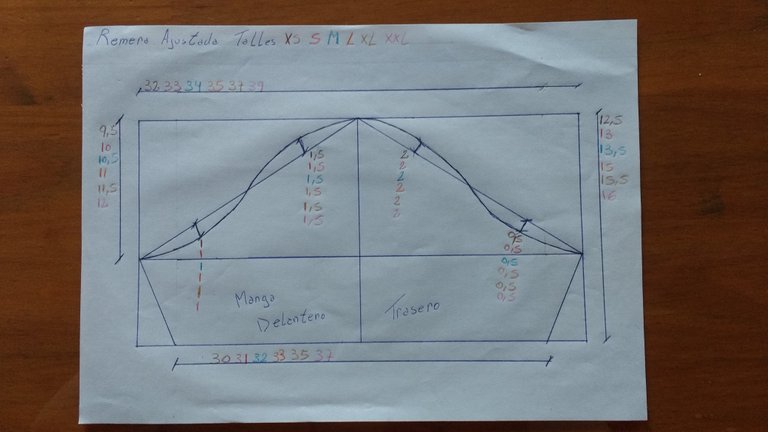 Remera Ajustada Talles XS S M L XL XXL
32 33 34 35 37 39
9,5
10
10,5
11
11,5
12
12,5
13
13,5
15
15,5
16
1,5
1,5
1,5
1,5
1,5
1,5
2
2
2
2
2
2
1
1
1
1
1
1
0,5
0,5
0,5
0,5
0,5
Manga
Delantero
Trasero
30 31 32 33 35 37